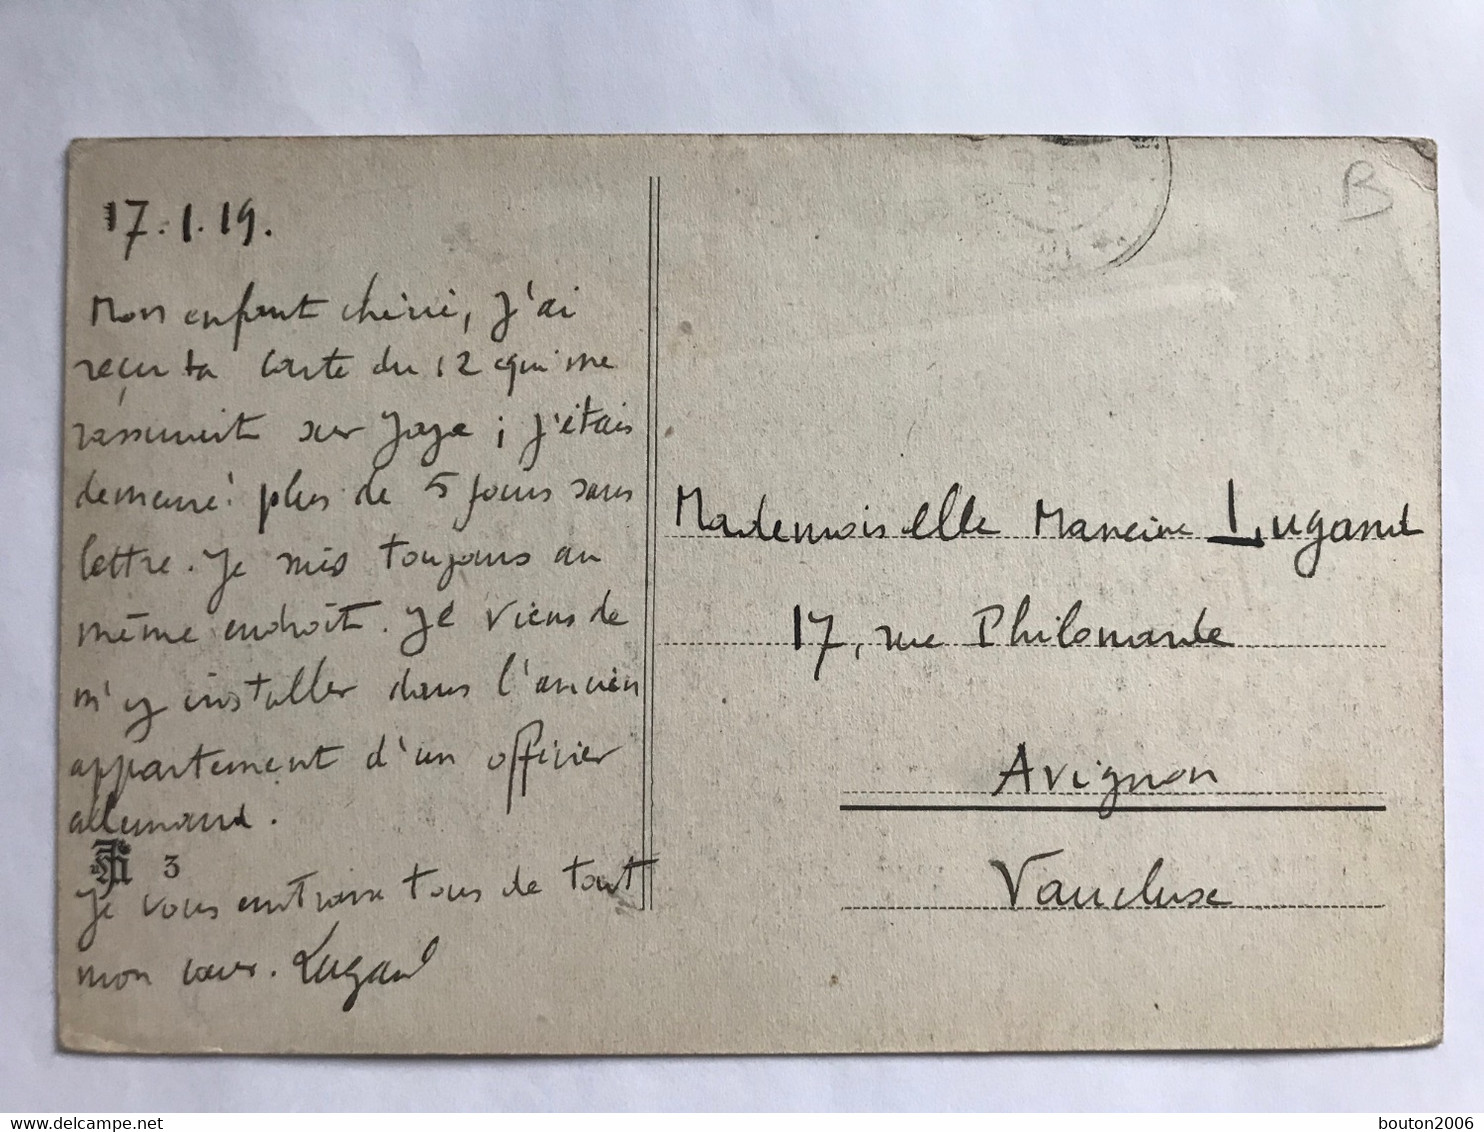 17.1.19.
Mon enfant chérie, j'ai
reçu ta carte du 12 qui me
rassurait sur Jaja ; j'étais
demeuré plus de 5 jours sans
lettre. Je suis toujours au
même endroit. Je viens de
m'y installer dans l'ancien
appartement d'un officier
allemand.
3
Je vous embrasse tous de tout
mon cœur. Lugand
B
Mademoiselle Lugand
17, rue Philonarde
Avignon
Vaucluse
delcampe.net
bouton2006